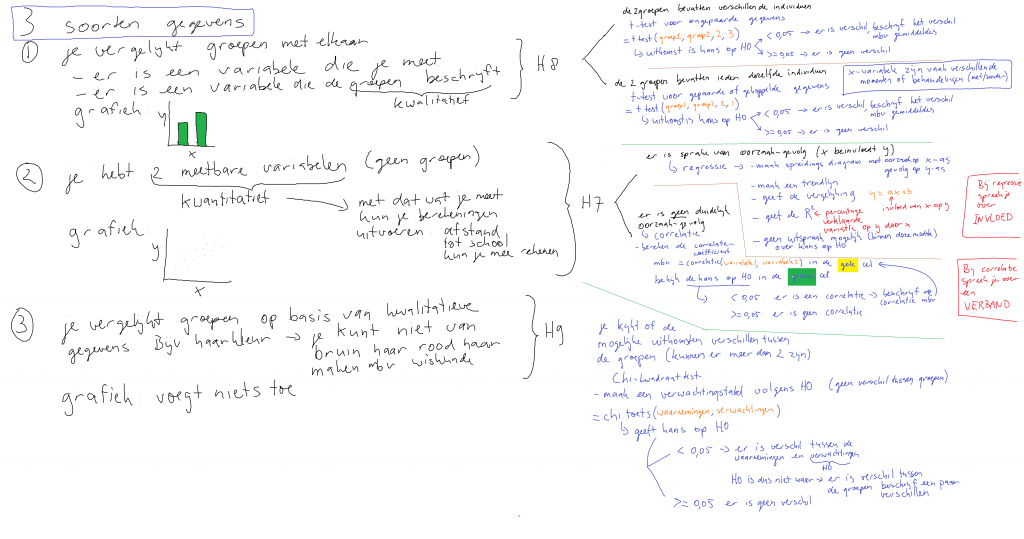 3 soorten gegevens
① je vergelijkt groepen met elkaar
- er is een variabele die je meet
- er is een variabele die de groepen beschrijft
kwalitatief
grafiek:
y
x
H8
② je hebt 2 meetbare variabelen (geen groepen)
kwantitatief
→ met dat wat je meet
kun je berekeningen
uitvoeren: afstand
tot school
kun je mee rekenen
grafiek
y
x
H7
③ je vergelijkt groepen op basis van kwalitatieve
gegevens. Bijv haarkleur → je kunt niet van
bruin haar rood haar
maken mbv wiskunde
grafiek: voegt niets toe
H9
de 2 groepen bevatten verschillende individuen
t-test voor ongepaarde gegevens
= t test (groep1, groep2, 2, 3)
↳ uitkomst is kans op H0
< 0,05 → er is verschil, beschrijf het verschil
mbv gemiddeldes
>= 0,05 → er is geen verschil
de 2 groepen bevatten ieder dezelfde individuen
t-test voor gepaarde of gekoppelde gegevens
= t test (groep1, groep2, 2, 1)
↳ uitkomst is kans op H0
x-variabele zijn vaak verschillende
momenten of behandelingen (met/zonder)
< 0,05 → er is verschil, beschrijf het verschil
mbv gemiddeldes
>= 0,05 → er is geen verschil
er is sprake van oorzaak-gevolg (x beinvloedt y)
↳ regressie → - maak spreidings diagram met oorzaak op x-as
gevolg op y-as
- maak een trendlijn
- geef de vergelijking y = ax+b
invloed van x op y
- geef de R² ← percentage
verklaarde
variatie op y door x
- geen uitspraak mogelijk (binnen deze module)
over kans op H0
By regressie
spreek je
over
INVLOED
er is geen duidelijk
oorzaak-gevolg
↳ correlatie
- bereken de correlatie-
coefficient
mbv = correlatie(variabele1, variabele2) in de gele cel
bekijk de kans op H0 in de groene cel
↳ < 0,05 er is een correlatie → beschrijf de
correlatie mbv
>= 0,05 er is geen correlatie
By correlatie
spreek je over
een
VERBAND
je kijkt of de
mogelijke uitkomsten verschillen tussen
de groepen (kunnen er meer dan 2 zijn)
Chi-kwadraattest
- maak een verwachtingstabel volgens H0 (geen verschil tussen groepen)
= chi toets (waarnemingen, verwachtingen)
↳ geeft kans op H0
< 0,05 → er is verschil tussen de
waarnemingen en verwachtingen
H0
H0 is dus niet waar → er is verschil tussen
de groepen beschrijf een paar
verschillen
>= 0,05 er is geen verschil